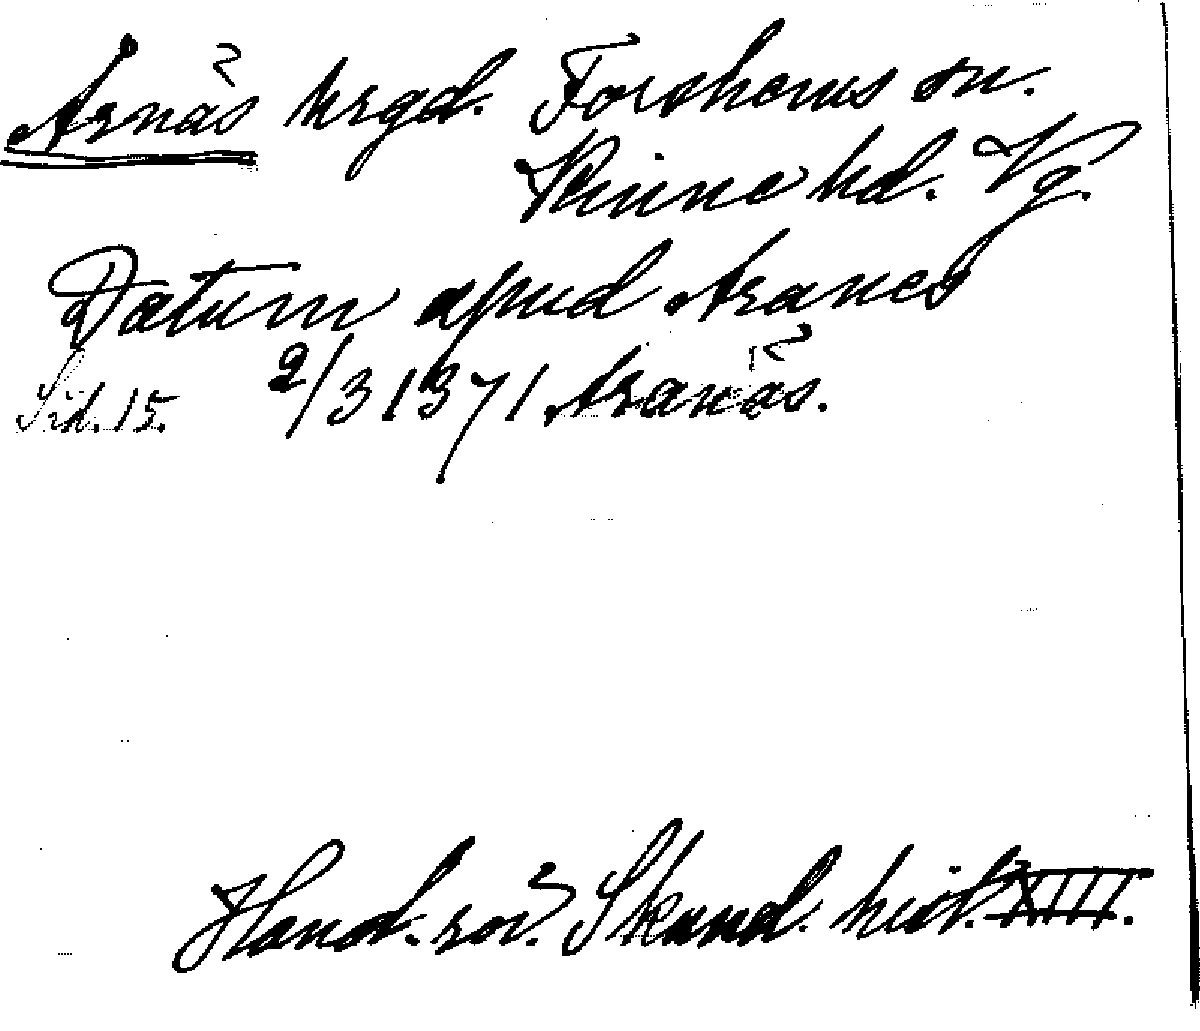 Årnäs hrgd. Forshems sn.
Kinne hd. Vg.
Datum apud Aranes
Sid. 15. 2/3 1371 Aranäs.
Hand. rör. Skand. hist. XIII.